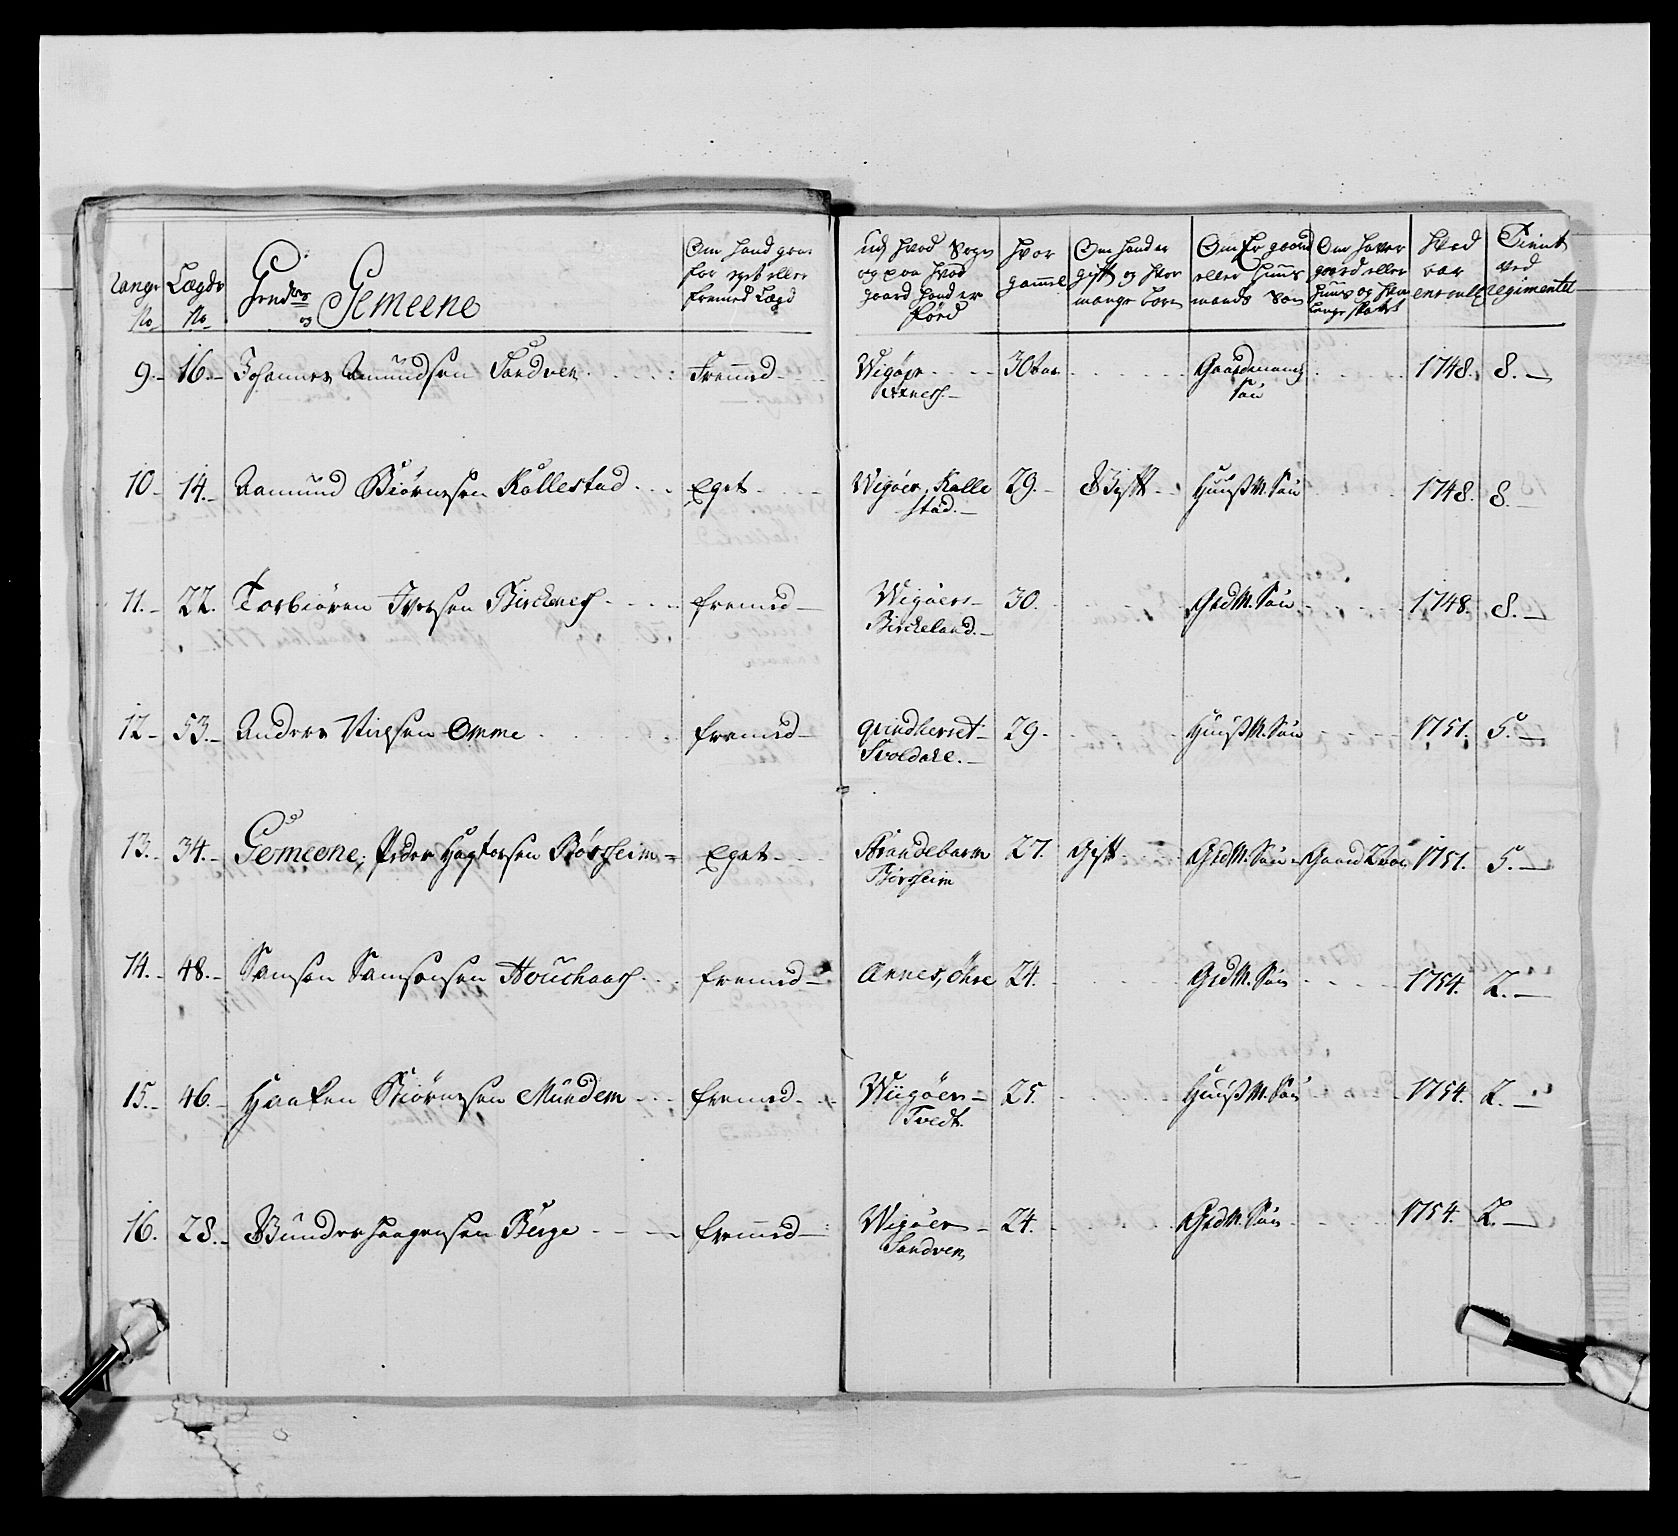 Range No
Lægds No
Gren drs og Gemeene
Om hand giør for eget eller fremed Lægd
Udj hvad Sogn og paa hvad gaard hand er Fød
Hvor gammel
Om hand er gift og hvor mange børn
Om Er gaard eller Huus mands Søn
Om haver gaard eller Huus og hvor længe
Hvad aar enroul
Tient ved Regimentet
9. 16. Johannes Amundsen Sandven Fremed Wigøer Axnes. 30 aar Gaardmands Søn 1748. 8.
10. 14. Aamund Biørnsen Kallestad Eget Wigøer, Kallestad. 29. Gift HuusM. Søn 1748. 8.
11. 22. Torbiøren Iversen Birckenes fremed Wigøers Birckeland. 30. GrdM. Søn 1748. 8.
12. 53. Anders Nielsen Omme fremed Quindherret Svoldahl. 29. HuusM. Søn 1751. 5.
13. 34. Gemeene, Peder Hagtorsen Børsheim Eget Strandebarm Børsheim 27. Gift GrdM. Søn Gaard 2 aar 1751. 5.
14. 48. Samson Samsonsen Houckaas fremed Annes, Øhre 24. GrdM. Søn 1754. 2.
15. 46. Haaken Biørnsen Mundem fremed Wiigøer Tvedt. 25. HuusM. Søn 1754. 2.
16. 28. Gunder Haagensen Berge fremed Wigøer Sandven 24. GrdM. Søn 1754. 2.